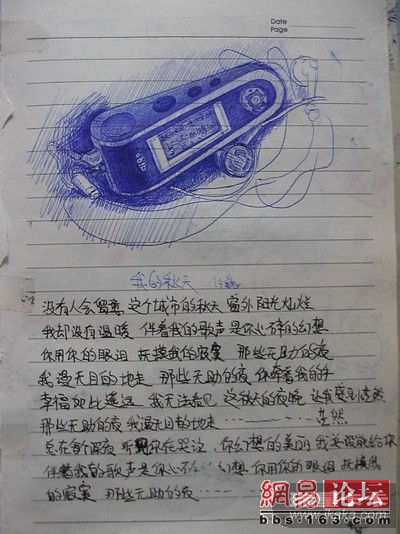 Date
Page
我的秋天 许巍
没有人会留意 这个城市的秋天 窗外阳光灿烂
我却没有温暖 伴着我的歌声 是你心碎的幻想
你用你的眼泪 抚摸我的寂寞 那些无助的夜
我漫无目的地走 那些无助的夜 你牵着我的手
幸福如此遥远 我无法看见 这秋天的夜晚 让我感到茫然
那些无助的夜 我漫无目的地走 …… 茫然
总在每个深夜 听见你在哭泣 你幻想的美丽 我无法给你
伴着我的歌声是你心碎 幻想 你用你的眼泪 抚摸我
的寂寞 那些无助的夜 ……
網易 论坛
bbs.163.com